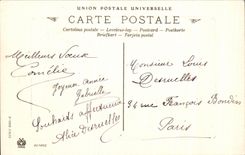 UNION POSTALE UNIVERSELLE
CARTE POSTALE
Cartolina postale – Levelezö-lap – Postcard – Postkarte
Briefkort – Tarjeta postal
Meilleurs Vœux
Cornélie
Joyeux année
Gabrielle
Souhaits affectueux
Alice Desruelles
Monsieur Louis
Desruelles
94 rue François
Paris